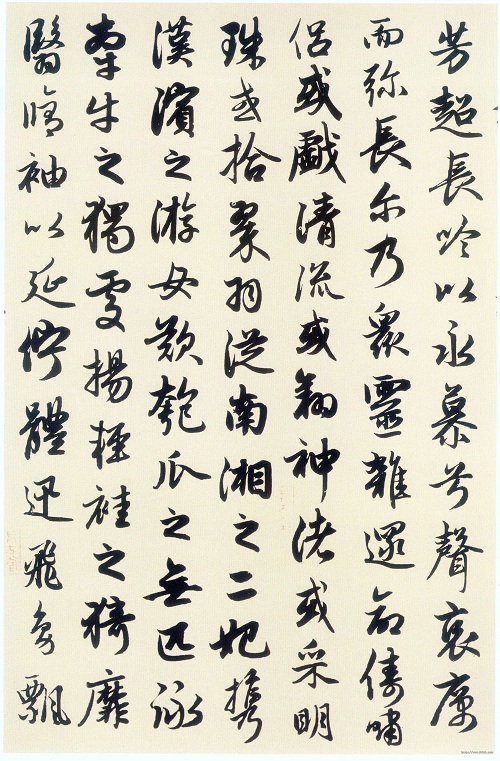 芳超長吟以永慕兮聲哀厲
而弥長尔乃衆靈雜遝命儔嘯
侣或戲清流或翔神渚或采明
珠或拾翠羽從南湘之二妃携
漢濱之游女歎匏瓜之無匹詠
牽牛之獨處揚輕袿之猗靡
翳脩袖以延佇體迅飛鳧飄